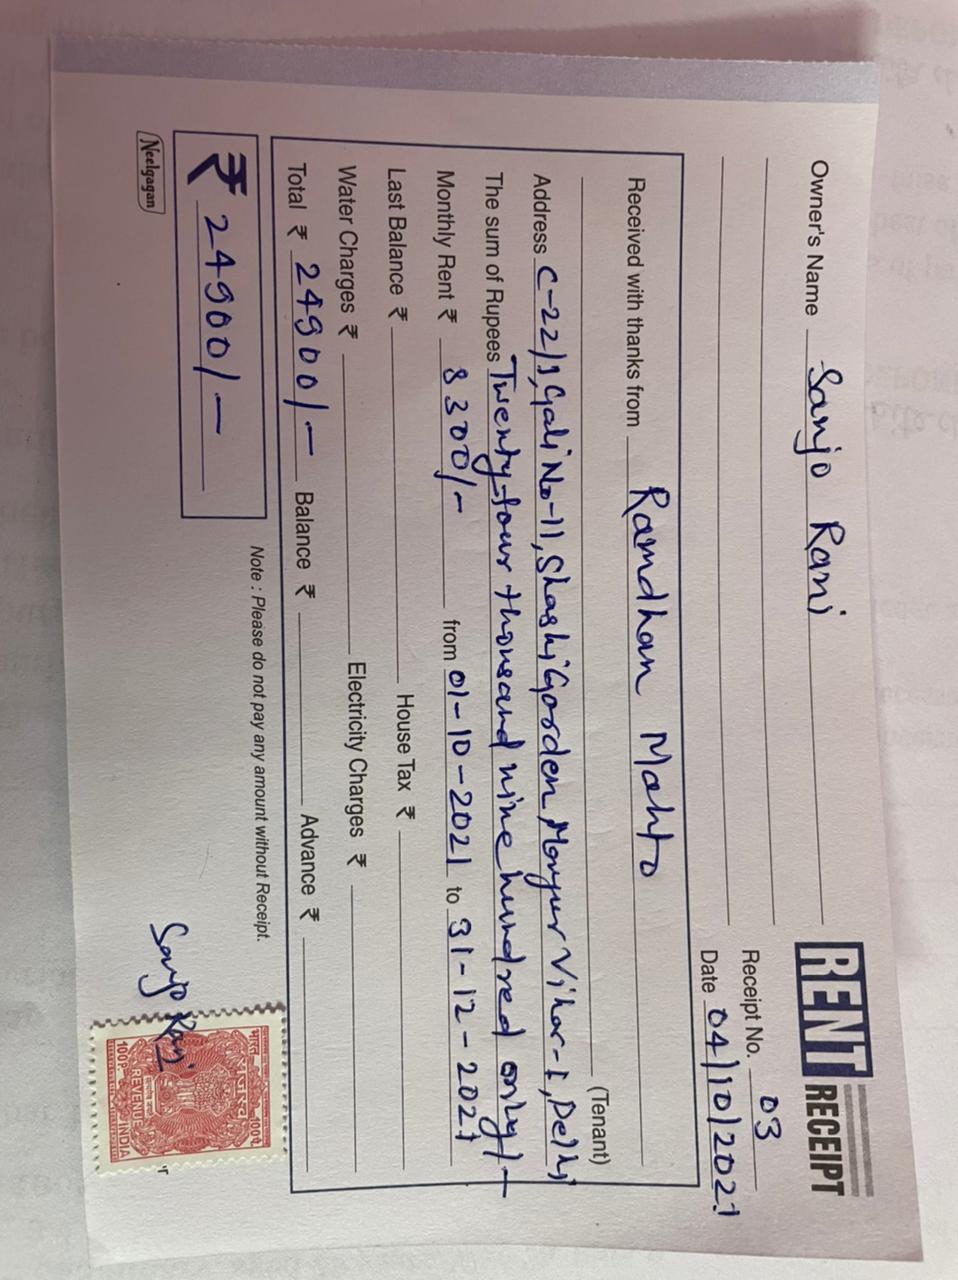 RENT RECEIPT
Owner's Name Sanjo Rani
Receipt No. 03
Date 04/10/2021
Received with thanks from Ramdhan Mahto
(Tenant)
Address C-22/1, Gali No-11, Shashi Garden, Mayur Vihar-I, Delhi
The sum of Rupees Twenty-four thousand nine hundred only/-
Monthly Rent ₹ 8300/- from 01-10-2021 to 31-12-2021
Last Balance ₹ House Tax ₹
Water Charges ₹ Electricity Charges ₹
Total ₹ 24900/- Balance ₹ Advance ₹
₹ 24900/-
Note : Please do not pay any amount without Receipt.
Sanjo Rani
Neelgagan
भारत 100P.
REVENUE
100P. INDIA